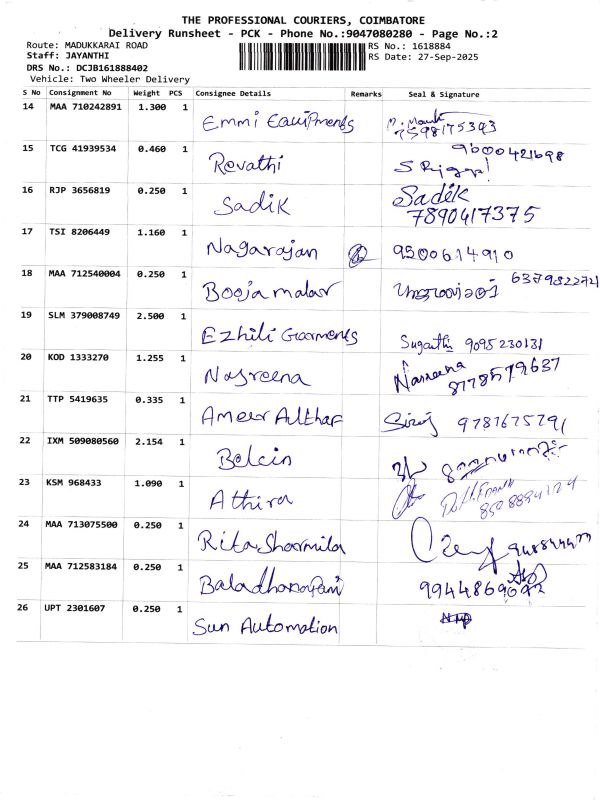 THE PROFESSIONAL COURIERS, COIMBATORE
Delivery Runsheet - PCK - Phone No.:9047080280 - Page No.:2
Route: MADUKKARAI ROAD RS No.: 1618884
Staff: JAYANTHI RS Date: 27-Sep-2025
DRS No.: DCJB161888402
Vehicle: Two Wheeler Delivery
S No Consignment No Weight PCS Consignee Details Remarks Seal & Signature
14 MAA 710242891 1.300 1 Emmi Equipments
7598175393
15 TCG 41939534 0.460 1 Revathi 9600421698
16 RJP 3656819 0.250 1 Sadik Sadik
7890417375
17 TSI 8206449 1.160 1 Nagarajan 9500614910
18 MAA 712540004 0.250 1 Booja malar
19 SLM 379008749 2.500 1 Ezhili Garments Suganthi 9095230131
20 KOD 1333270 1.255 1 Nasreena Nasreena
8778579637
21 TTP 5419635 0.335 1 Ameer Althaf 9787675791
22 IXM 509080560 2.154 1 Belcin
23 KSM 968433 1.090 1 Athira
24 MAA 713075500 0.250 1 Rita Sharmila
25 MAA 712583184 0.250 1
26 UPT 2301607 0.250 1 Sun Automation